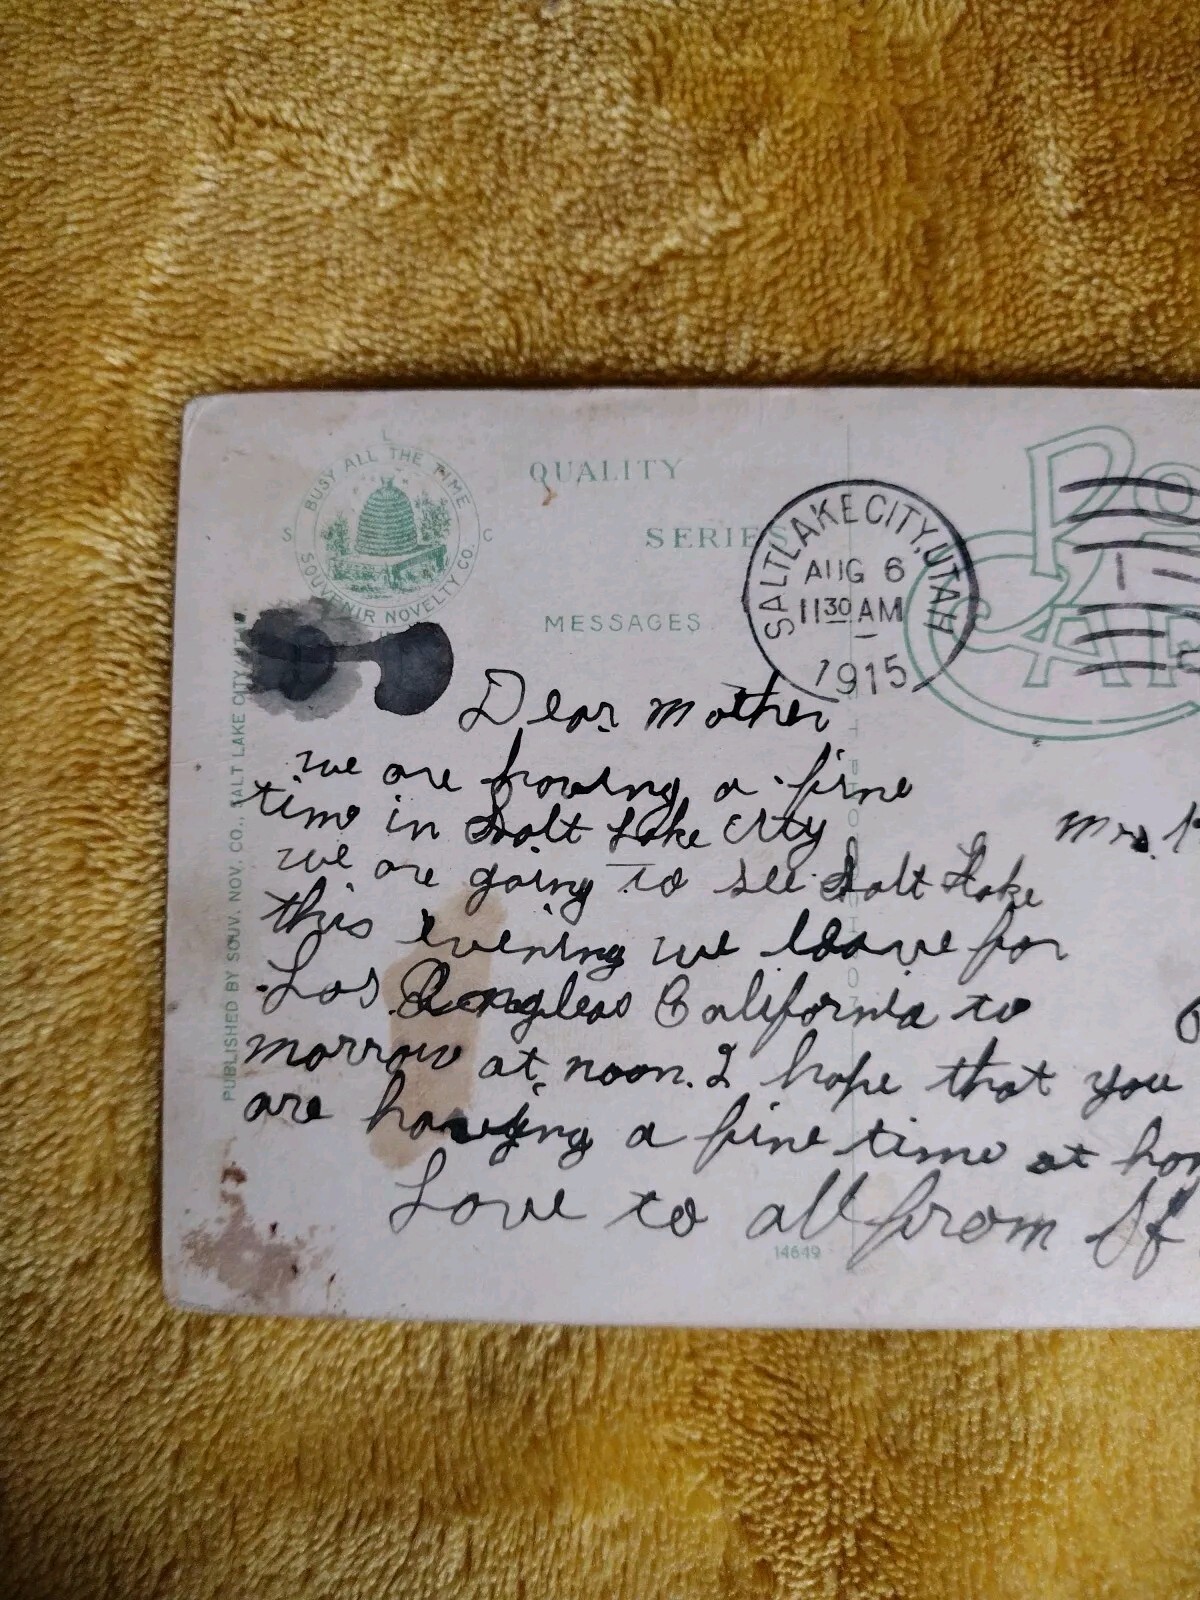 L
BUSY ALL THE TIME
S C
SOUVENIR NOVELTY CO.
QUALITY
SERIES
MESSAGES
SALT LAKE CITY, UTAH
AUG 6
11 30 AM
1915
PUBLISHED BY SOUV. NOV. CO., SALT LAKE CITY, UTAH
Dear Mother
we are having a fine
time in Salt Lake City
we are going to see Salt Lake
this evening we leave for
Los Anegleas California to
morrow at noon. I hope that you
are having a fine time at
Love to all from
14649
Mrs.